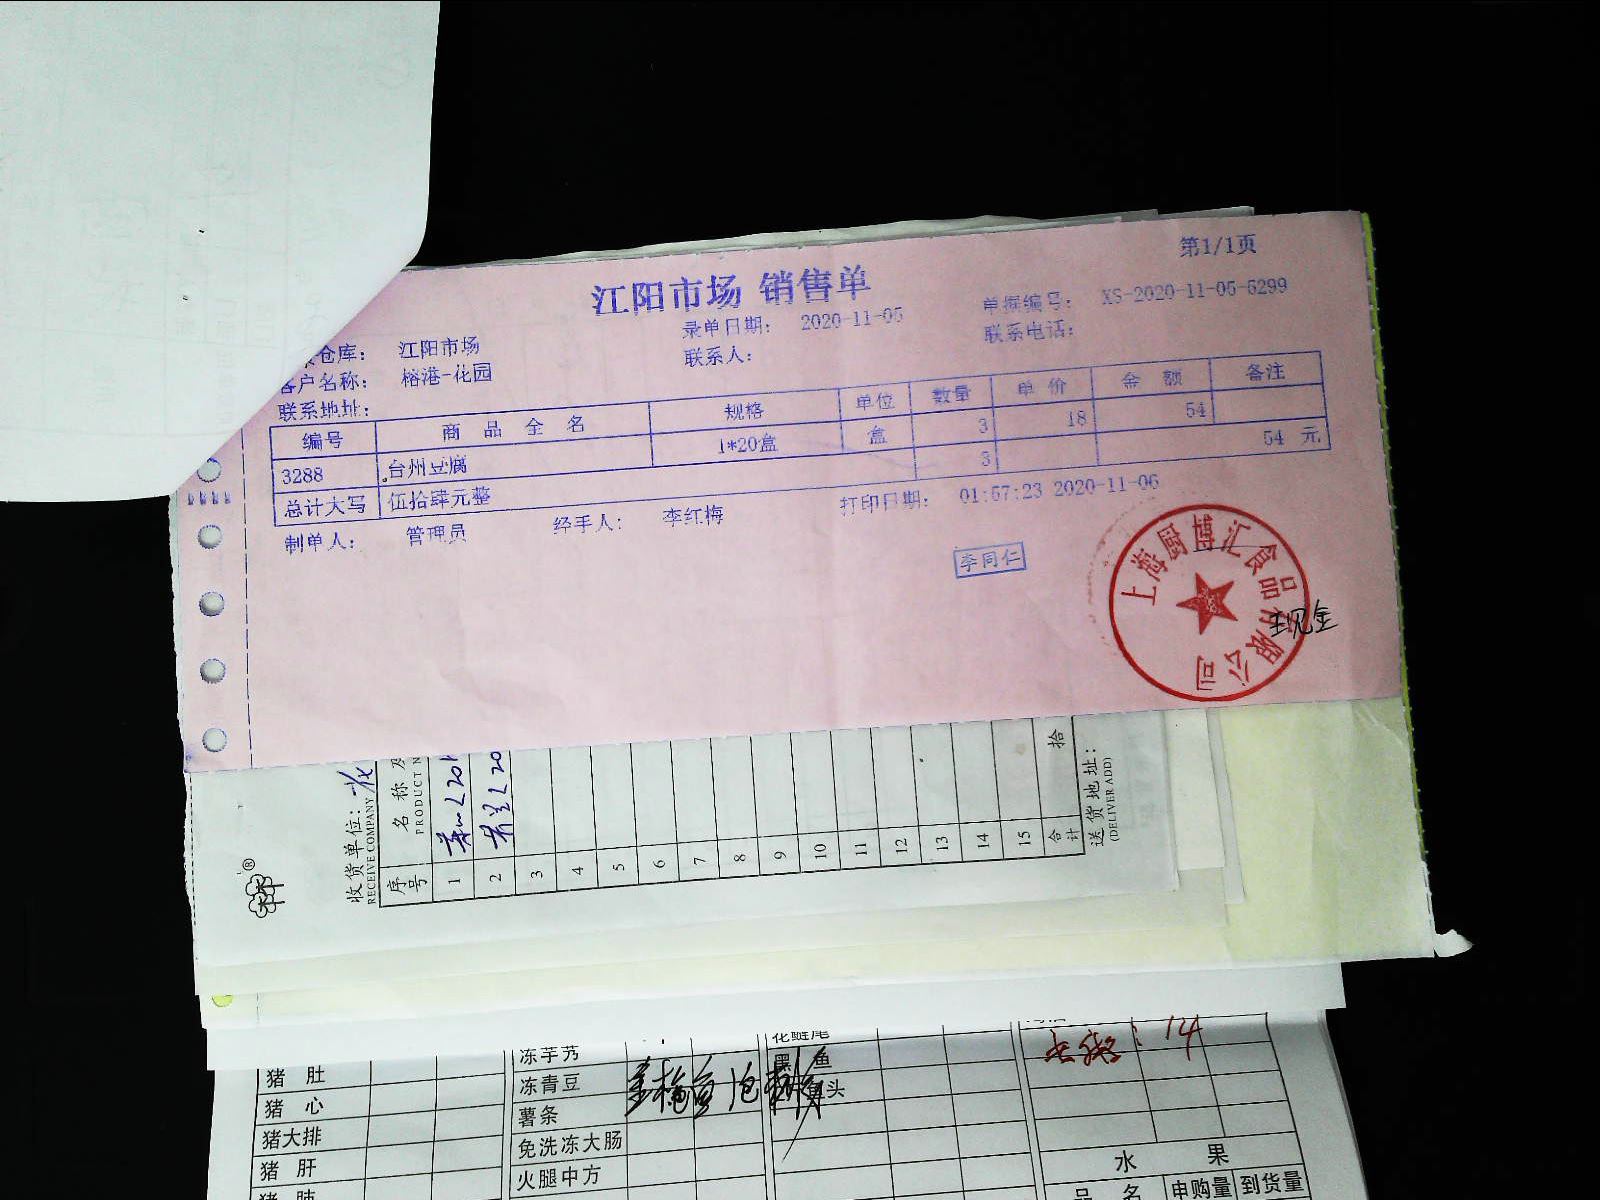 第1/1页
江阳市场 销售单
仓库： 江阳市场 录单日期： 2020-11-05 单据编号： XS-2020-11-05-5299
客户名称： 榕港-花园 联系人： 联系电话：
联系地址：
编号 商品全名 规格 单位 数量 单价 金额 备注
3288 台州豆腐 1*20盒 盒 3 18 54
总计大写 伍拾肆元整 3 54 元
制单人： 管理员 经手人： 李红梅 打印日期： 01:57:23 2020-11-06
李同仁
上海厨博汇食品有限公司
现金
收货单位：
RECEIVE COMPANY
序号 名称及
PRODUCT N
1
2
3
4
5
6
7
8
9
10
11
12
13
14
15
合计 拾
送货地址：
(DELIVER ADD)
冻芋艿 花鲢尾
猪肚 冻青豆 黑鱼 14
猪心 薯条 鱼头
猪大排 免洗冻大肠
猪肝 火腿中方 水果
品名 申购量 到货量